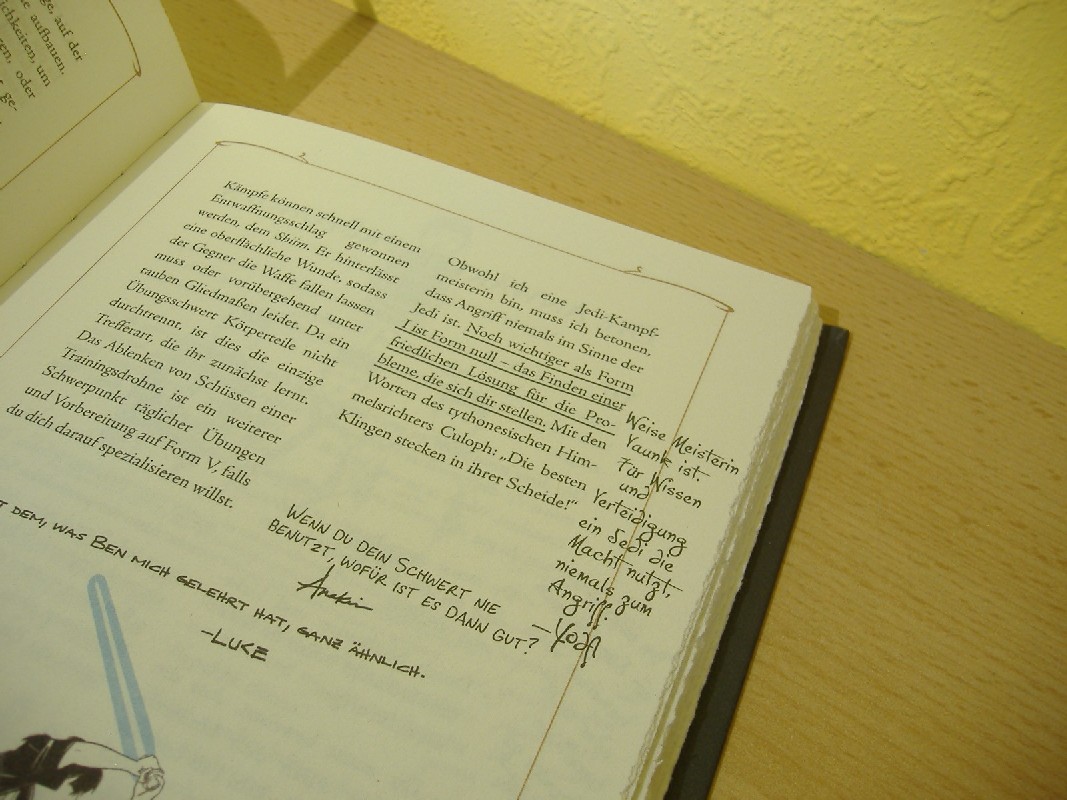 ge, auf der
e aufbauen.
ichkeiten, um
en, oder
ge-
Kämpfe können schnell mit einem
Entwaffnungsschlag gewonnen
werden, dem Shiim. Er hinterlässt
eine oberflächliche Wunde, sodass
der Gegner die Waffe fallen lassen
muss oder vorübergehend unter
tauben Gliedmaßen leidet. Da ein
Übungsschwert Körperteile nicht
durchtrennt, ist dies die einzige
Trefferart, die ihr zunächst lernt.
Das Ablenken von Schüssen einer
Trainingsdrohne ist ein weiterer
Schwerpunkt täglicher Übungen
und Vorbereitung auf Form V, falls
du dich darauf spezialisieren willst.
Obwohl ich eine Jedi-Kampf-
meisterin bin, muss ich betonen,
dass Angriff niemals im Sinne der
Jedi ist. Noch wichtiger als Form
I ist Form null – das Finden einer
friedlichen Lösung für die Pro-
bleme, die sich dir stellen. Mit den
Worten des rythonesischen Him-
melsrichters Culoph: „Die besten
Klingen stecken in ihrer Scheide!“
Weise Meisterin
Yaunk ist.
Für Wissen
und
Verteidigung
ein Jedi die
Macht nutzt,
niemals zum
Angriff.
–Yoda
WENN DU DEIN SCHWERT NIE
BENUTZT, WOFÜR IST ES DANN GUT?
Anakin
T DEM, WAS BEN MICH GELEHRT HAT, GANZ ÄHNLICH.
–LUKE